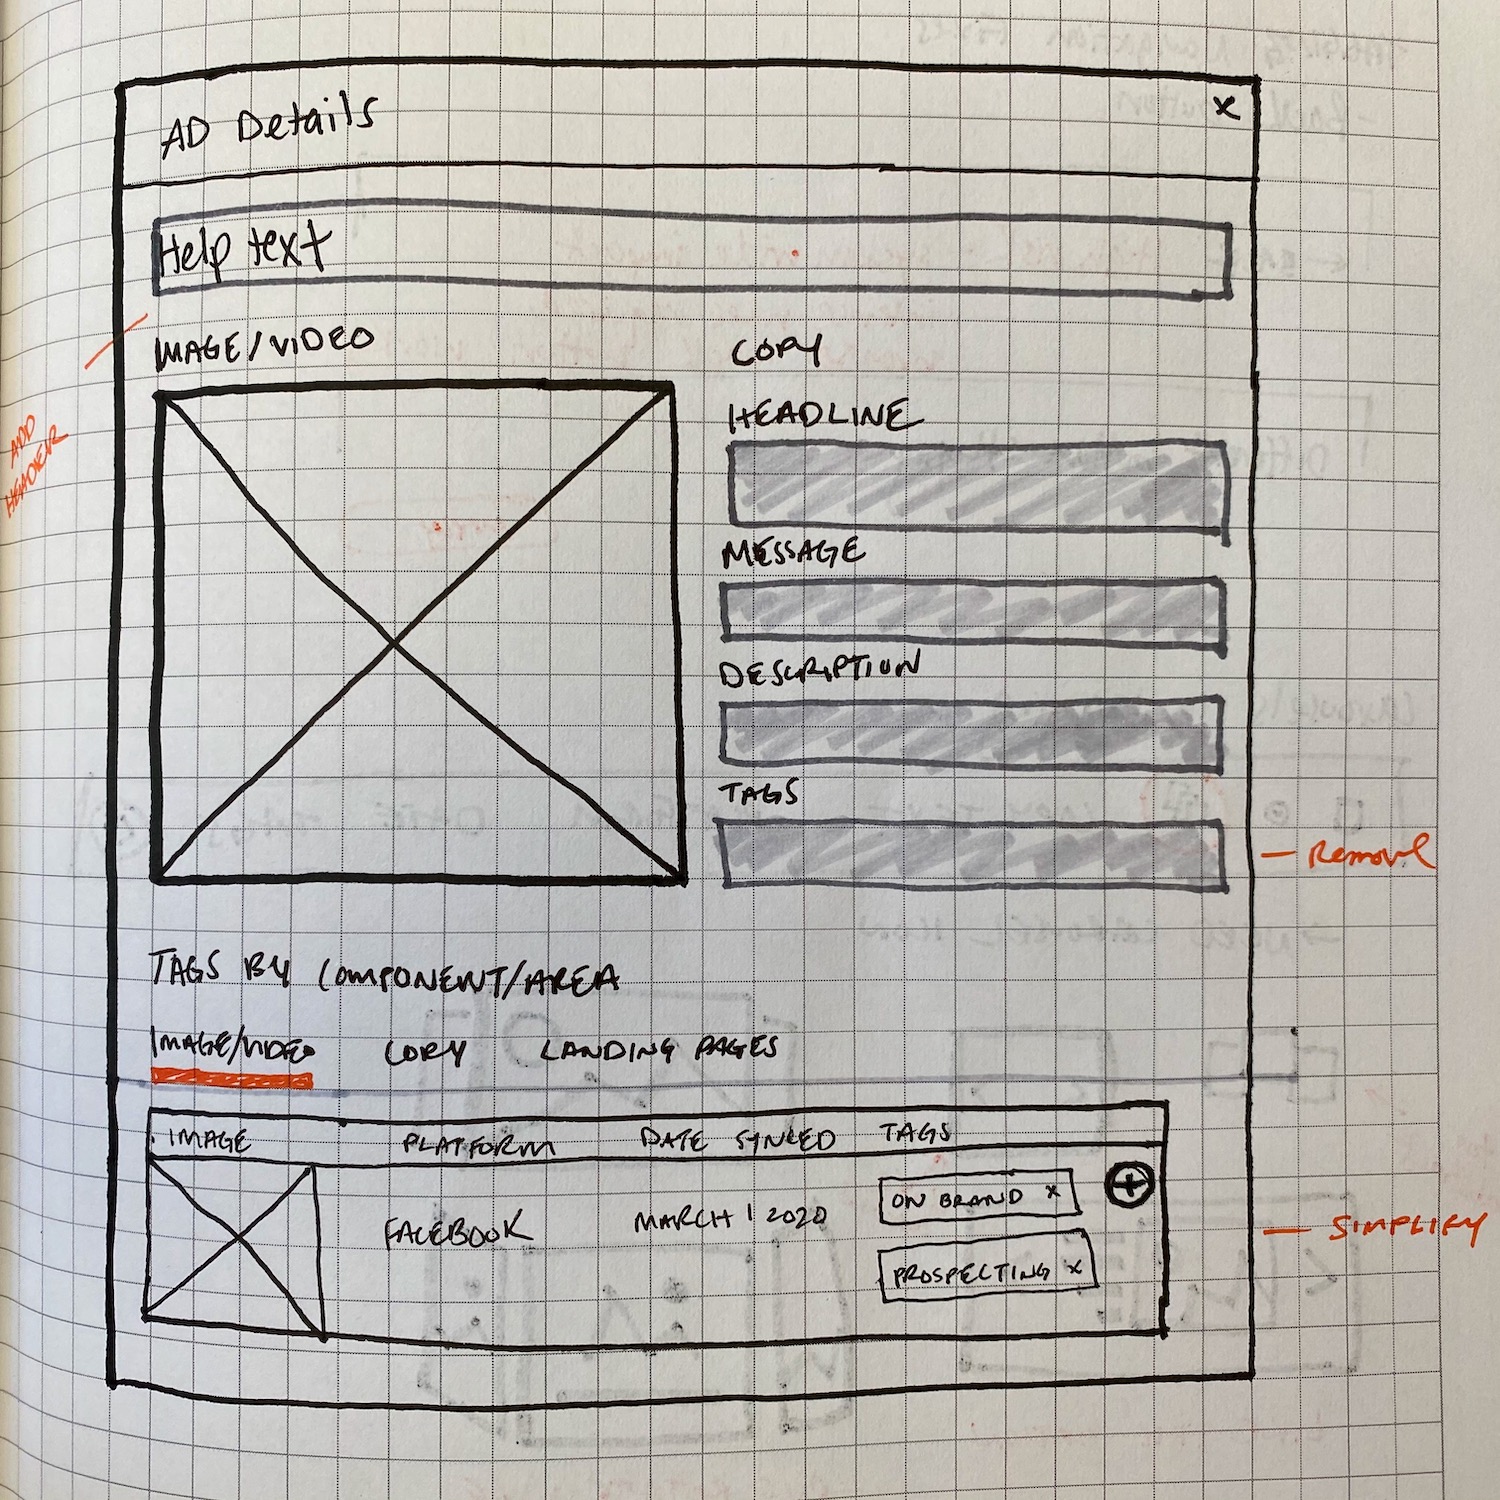 AD Details
x
Help text
IMAGE/VIDEO
COPY
HEADLINE
ADD
HEADER
MESSAGE
DESCRIPTION
TAGS
- Remove
TAGS BY COMPONENT/AREA
IMAGE/VIDEO COPY LANDING PAGES
IMAGE PLATFORM DATE SYNCED TAGS
FACEBOOK MARCH 1 2020 ON BRAND x +
PROSPECTING x
- SIMPLIFY